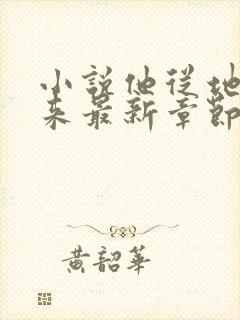 小說他從地
來最新章節
黃韶華